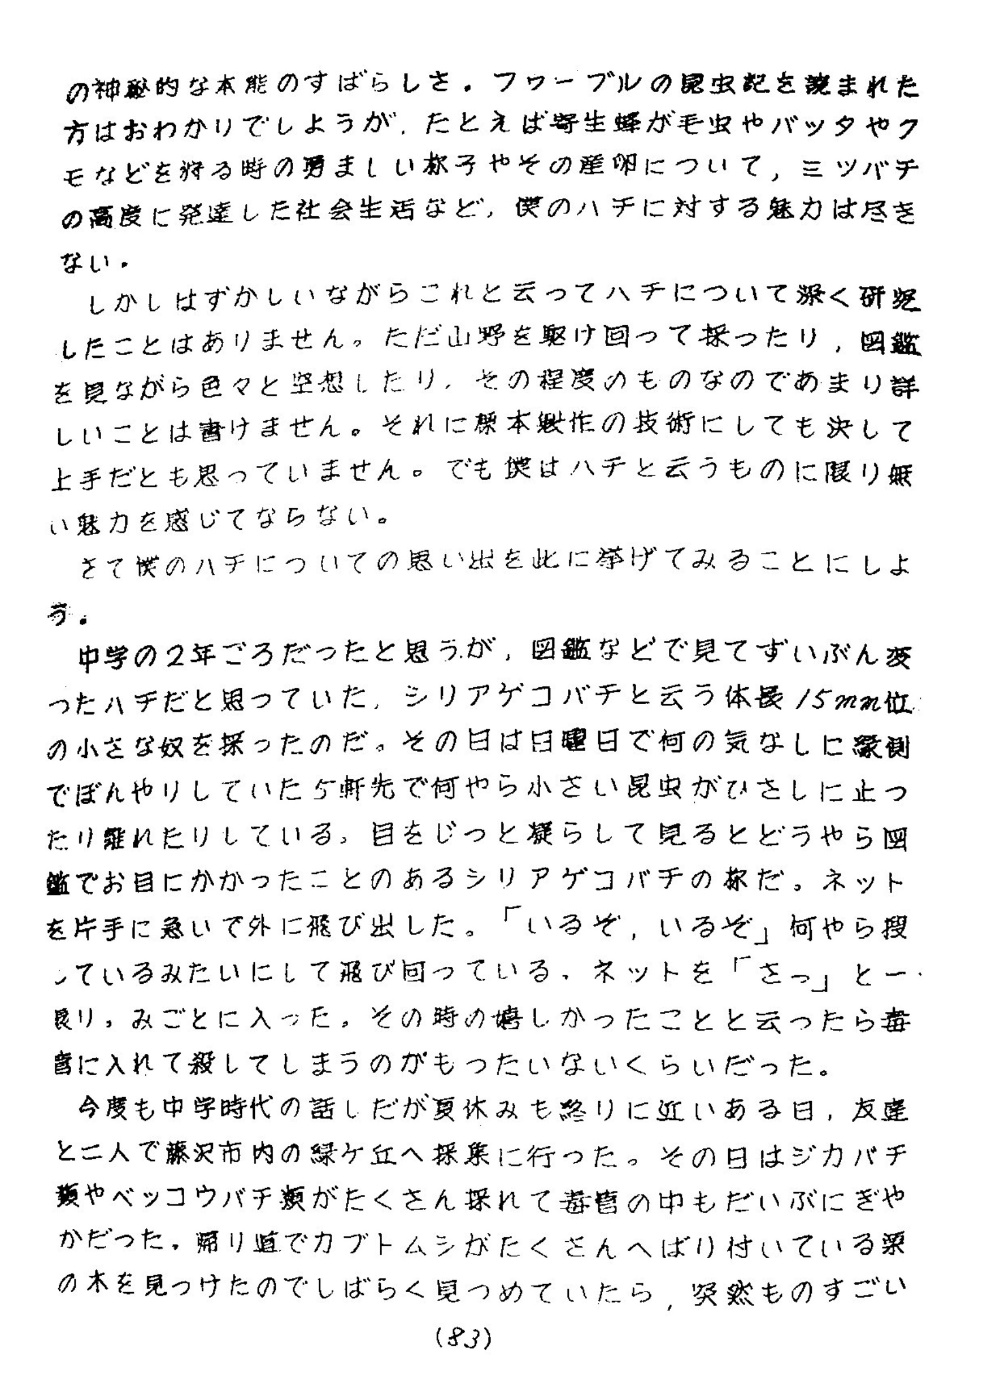 の神秘的な本能のすばらしさ。ファーブルの昆虫記を読まれた
方はおわかりでしようが，たとえば寄生蜂が毛虫やバッタやク
モなどを狩る時の勇ましい様子やその産卵について，ミツバチ
の高度に発達した社会生活など，僕のハチに対する魅力は尽き
ない。
しかしはずかしいながらこれと云ってハチについて深く研究
したことはありません。ただ山野を駆け回って採ったり，図鑑
を見ながら色々と空想したり，その程度のものなのであまり詳
しいことは書けません。それに標本製作の技術にしても決して
上手だとも思っていません。でも僕はハチと云うものに限り無
い魅力を感じてならない。
さて僕のハチについての思い出を此に挙げてみることにしよ
う。
中学の2年ごろだったと思うが，図鑑などで見てずいぶん変
ったハチだと思っていた，シリアゲコバチと云う体長15mm位
の小さな奴を採ったのだ。その日は日曜日で何の気なしに縁側
でぼんやりしていたら軒先で何やら小さい昆虫がひさしに止っ
たり離れたりしている。目をじっと凝らして見るとどうやら図
鑑でお目にかかったことのあるシリアゲコバチの様だ。ネット
を片手に急いで外に飛び出した。「いるぞ，いるぞ」何やら捜
しているみたいにして飛び回っている。ネットを「さっ」と一
振り。みごとに入った。その時の嬉しかったことと云ったら毒
管に入れて殺してしまうのがもったいないくらいだった。
今度も中学時代の話しだが夏休みも終りに近いある日，友達
と二人で藤沢市内の緑ケ丘へ採集に行った。その日はジカバチ
類やベッコウバチ類がたくさん採れて毒管の中もだいぶにぎや
かだった。帰り道でカブトムシがたくさんへばり付いている栗
の木を見つけたのでしばらく見つめていたら，突然ものすごい
(83)